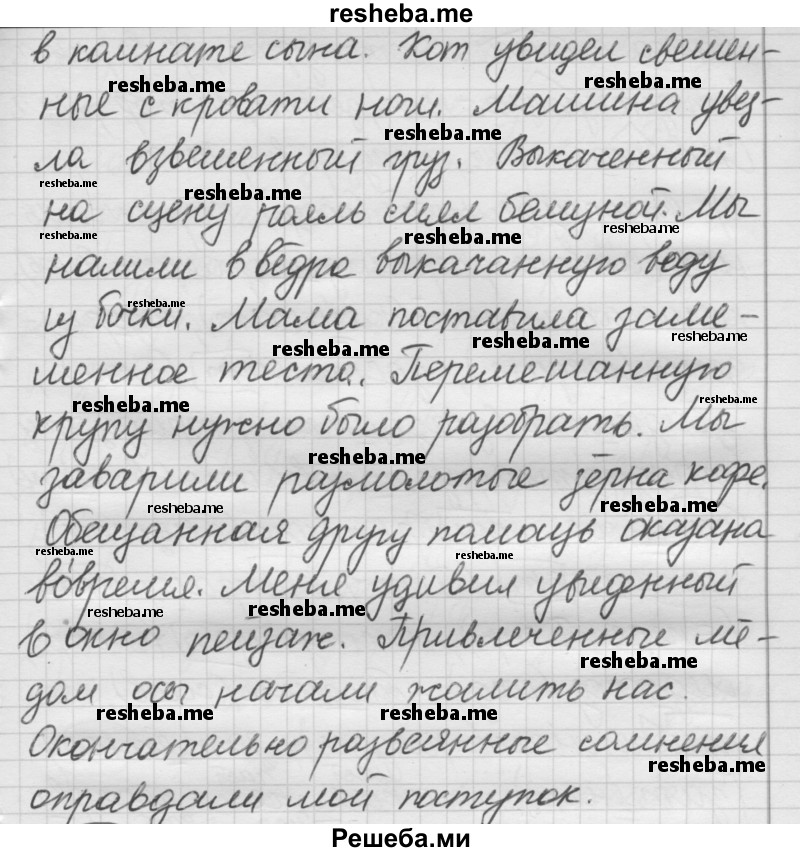 resheba.me
в комнате сына. Кот увидел свешен-
resheba.me resheba.me
ные с кровати ноги. Машина увез-
resheba.me
ла взвешенный груз. Выкаченный
resheba.me resheba.me
на сцену рояль сиял белизной. Мы
resheba.me resheba.me resheba.me
налили в вёдра выкачанную воду
resheba.me
из бочки. Мама поставила заме-
resheba.me resheba.me resheba.me
шенное тесто. Перемешанную
resheba.me resheba.me
крупу нужно было разобрать. Мы
resheba.me
заварили размолотые зёрна кофе.
resheba.me resheba.me
Обещанная другу помощь оказана
resheba.me resheba.me
вовремя. Меня удивил увиденный
resheba.me resheba.me
в окно пейзаж. Привлеченные мё-
resheba.me
дом осы начали жалить нас.
resheba.me resheba.me
Окончательно развеянные сомнения
resheba.me
оправдали мой поступок.
Решеба.ми